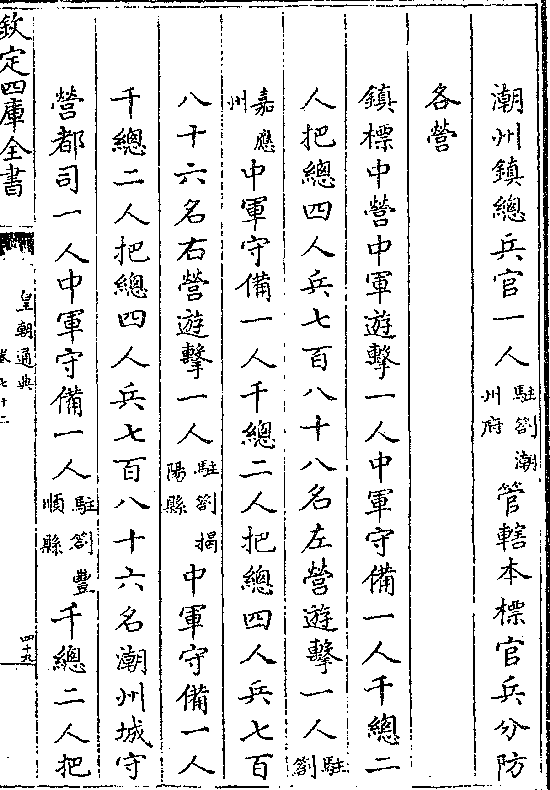 潮州鎮總兵官一人駐劄潮州府管轄本標官兵分防
各營
鎮標中營中軍遊擊一人中軍守備一人千總二
人把總四人兵七百八十八名左營遊擊一人駐劄
嘉應州中軍守備一人千總二人把總四人兵七百
八十六名右營遊擊一人駐劄揭陽縣中軍守備一人
千總二人把總四人兵七百八十六名潮州城守
營都司一人中軍守備一人駐劄豐順縣千總二人把
欽定四庫全書
皇朝通典
卷七十二
四十九